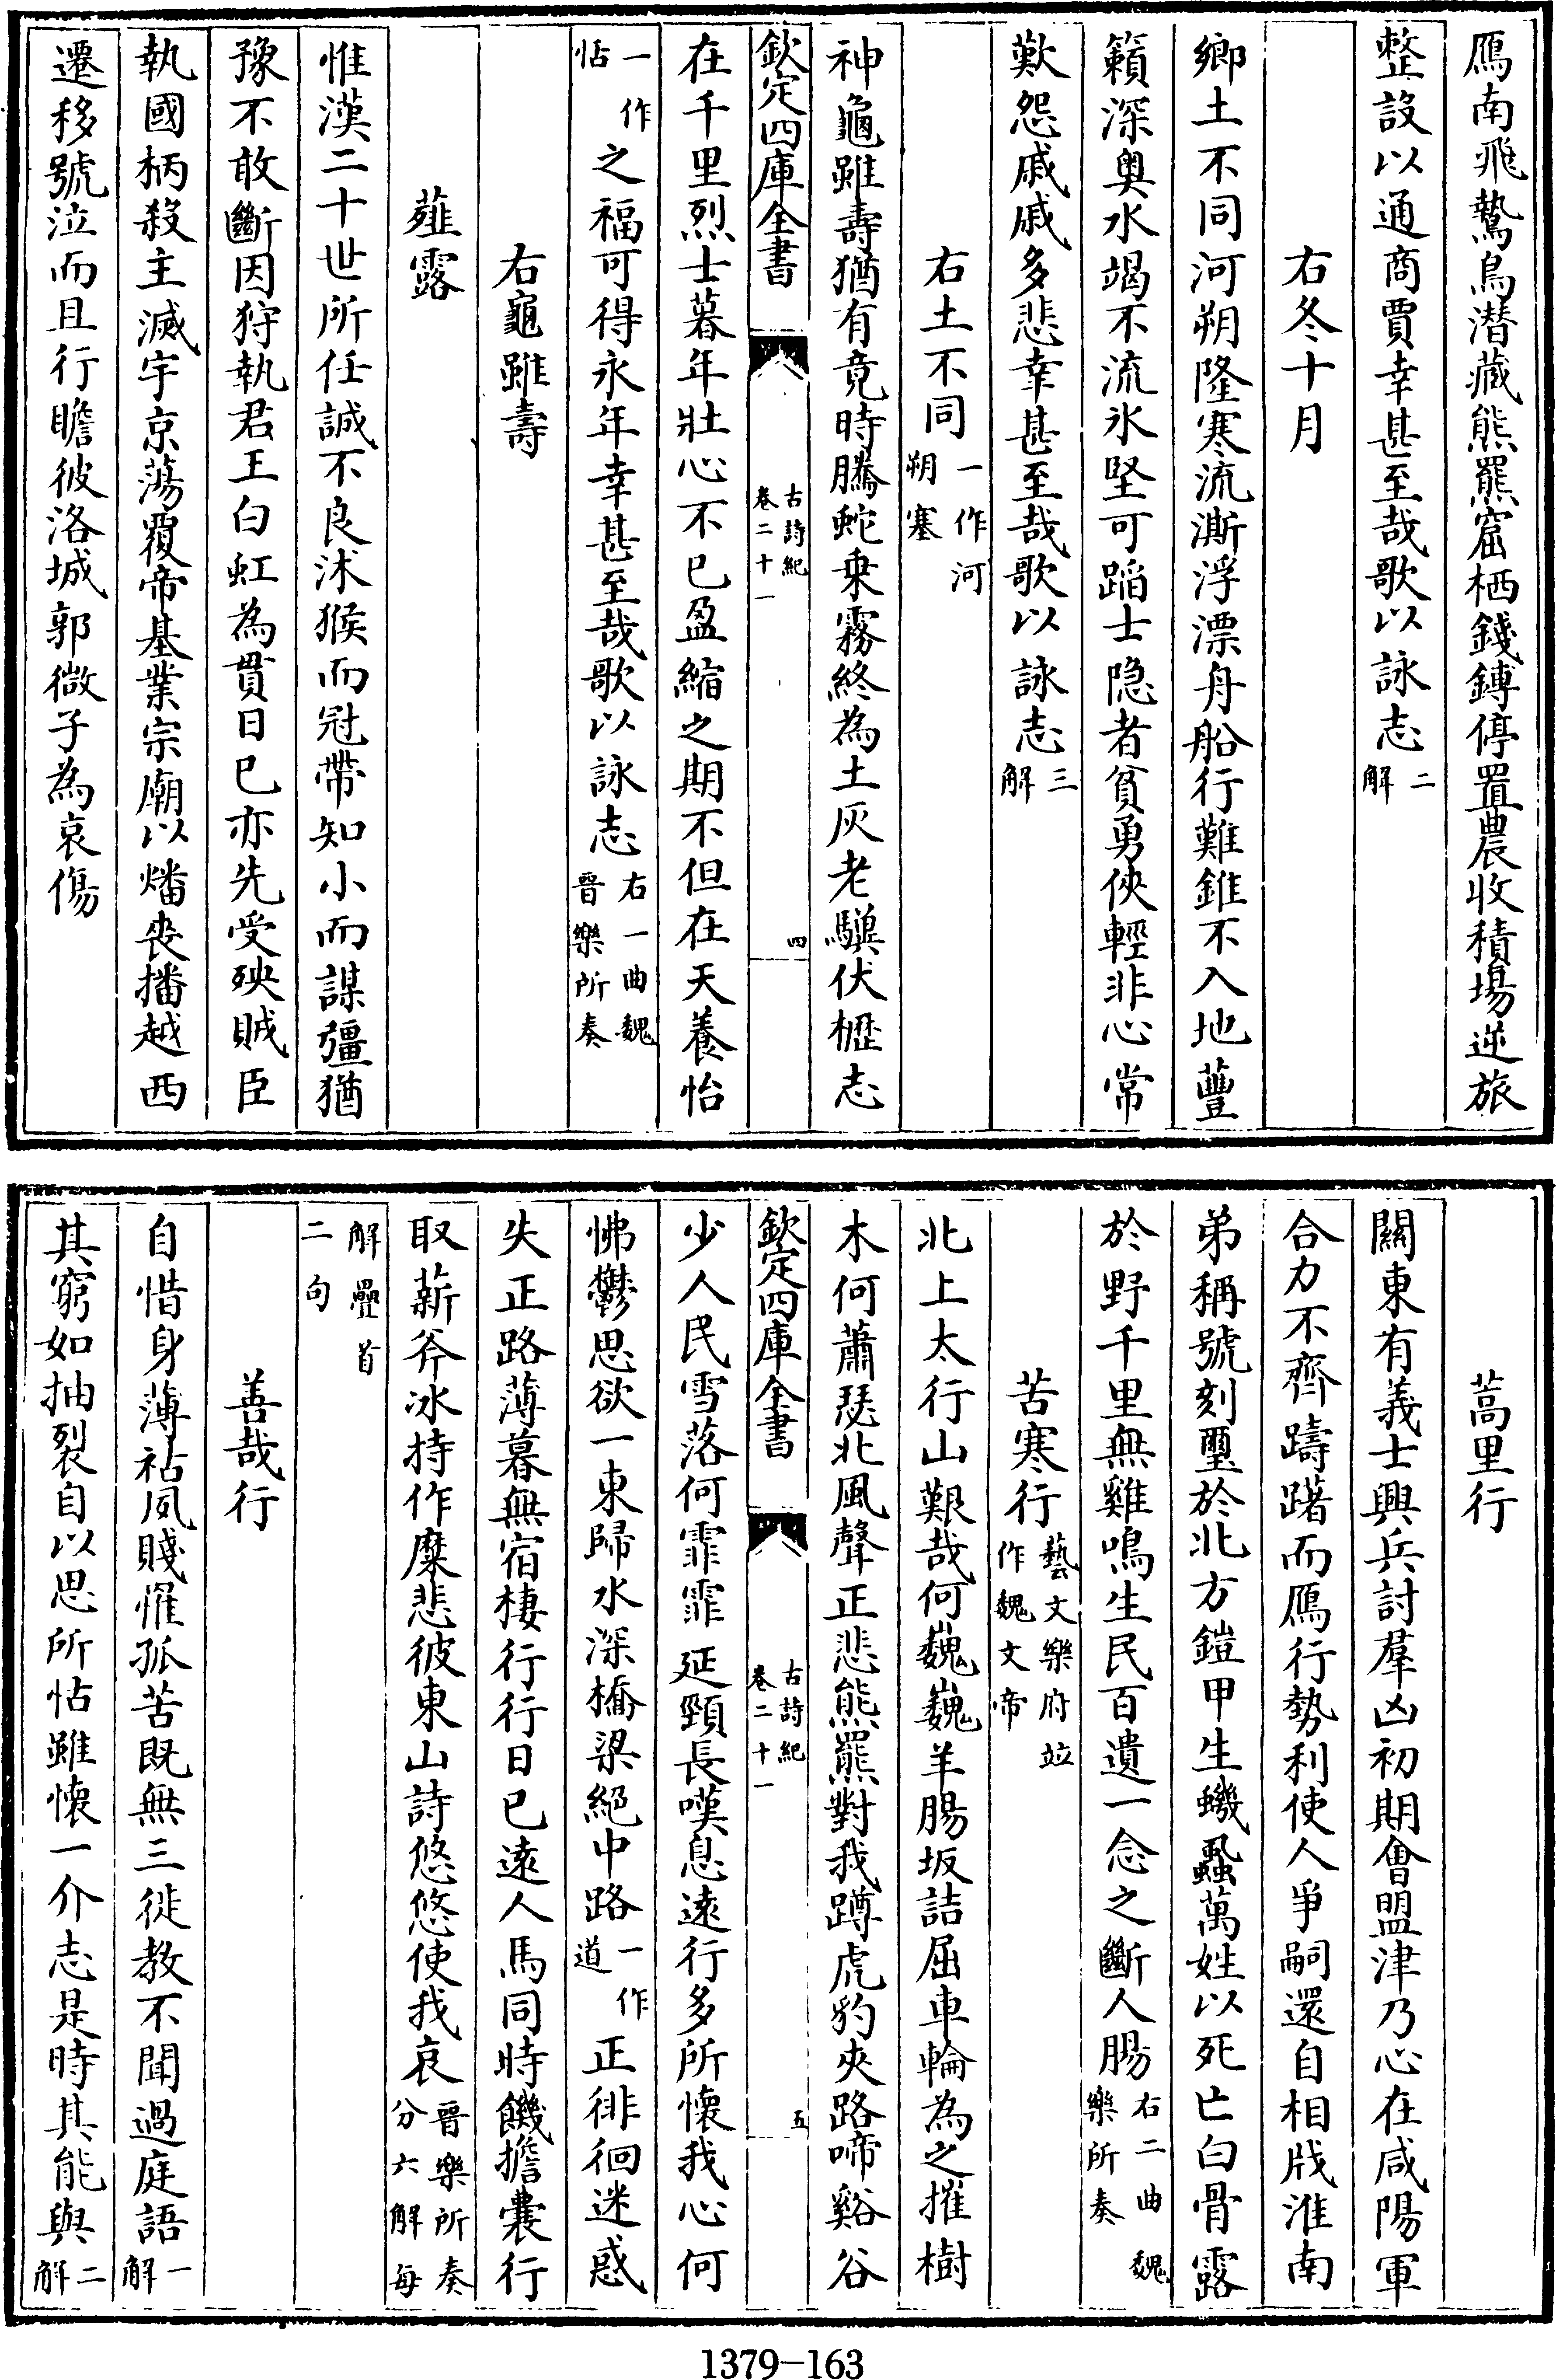 鴈南飛鷙鳥潛藏熊羆窟栖錢鎛停置農收積場逆旅
整設以通商賈幸甚至哉歌以詠志二解
右冬十月
鄉土不同河朔隆寒流澌浮漂舟船行難錐不入地蘴
籟深奧水竭不流氷堅可蹈士隐者貧勇俠輕非心常
歎怨戚戚多悲幸甚至哉歌以詠志三解
右土不同一作河朔塞
神龜雖壽猶有竟時騰蛇乗霧終為土灰老驥伏櫪志
欽定四庫全書
古詩紀
卷二十一
四
在千里烈士暮年壯心不已盈縮之期不但在天養怡
一作怗之福可得永年幸甚至哉歌以詠志右一曲魏晉樂所奏
右龜雖壽
薤露
惟漢二十世所任誠不良沐猴而冠帶知小而謀彊猶
豫不敢斷因狩執君王白虹為貫日已亦先受殃賊臣
執國柄殺主滅宇京蕩覆帝基業宗廟以燔喪播越西
遷移號泣而且行瞻彼洛城郭微子為哀傷
蒿里行
關東有義士興兵討羣凶初期會盟津乃心在咸陽軍
合力不齊躊躇而鴈行勢利使人爭嗣還自相戕淮南
弟稱號刻璽於北方鎧甲生蟣蝨萬姓以死亡白骨露
於野千里無雞鳴生民百遺一念之斷人腸右二曲魏樂所奏
苦寒行藝文樂府竝作魏文帝
北上太行山艱哉何巍巍羊腸坂詰屈車輪為之摧樹
木何蕭瑟北風聲正悲熊羆對我蹲虎豹夾路啼谿谷
欽定四庫全書
古詩紀
卷二十一
五
少人民雪落何霏霏延頸長嘆息遠行多所懷我心何
怫鬱思欲一東歸水深橋梁絕中路一作道正徘徊迷惑
失正路薄暮無宿棲行行日已遠人馬同時饑擔囊行
取薪斧冰持作糜悲彼東山詩悠悠使我哀晉樂所奏分六解每
解疊首二句
善哉行
自惜身薄祜夙賤罹孤苦既無三徙教不聞過庭語一解
其窮如抽裂自以思所怙雖懷一介志是時其能與二解
1379-163